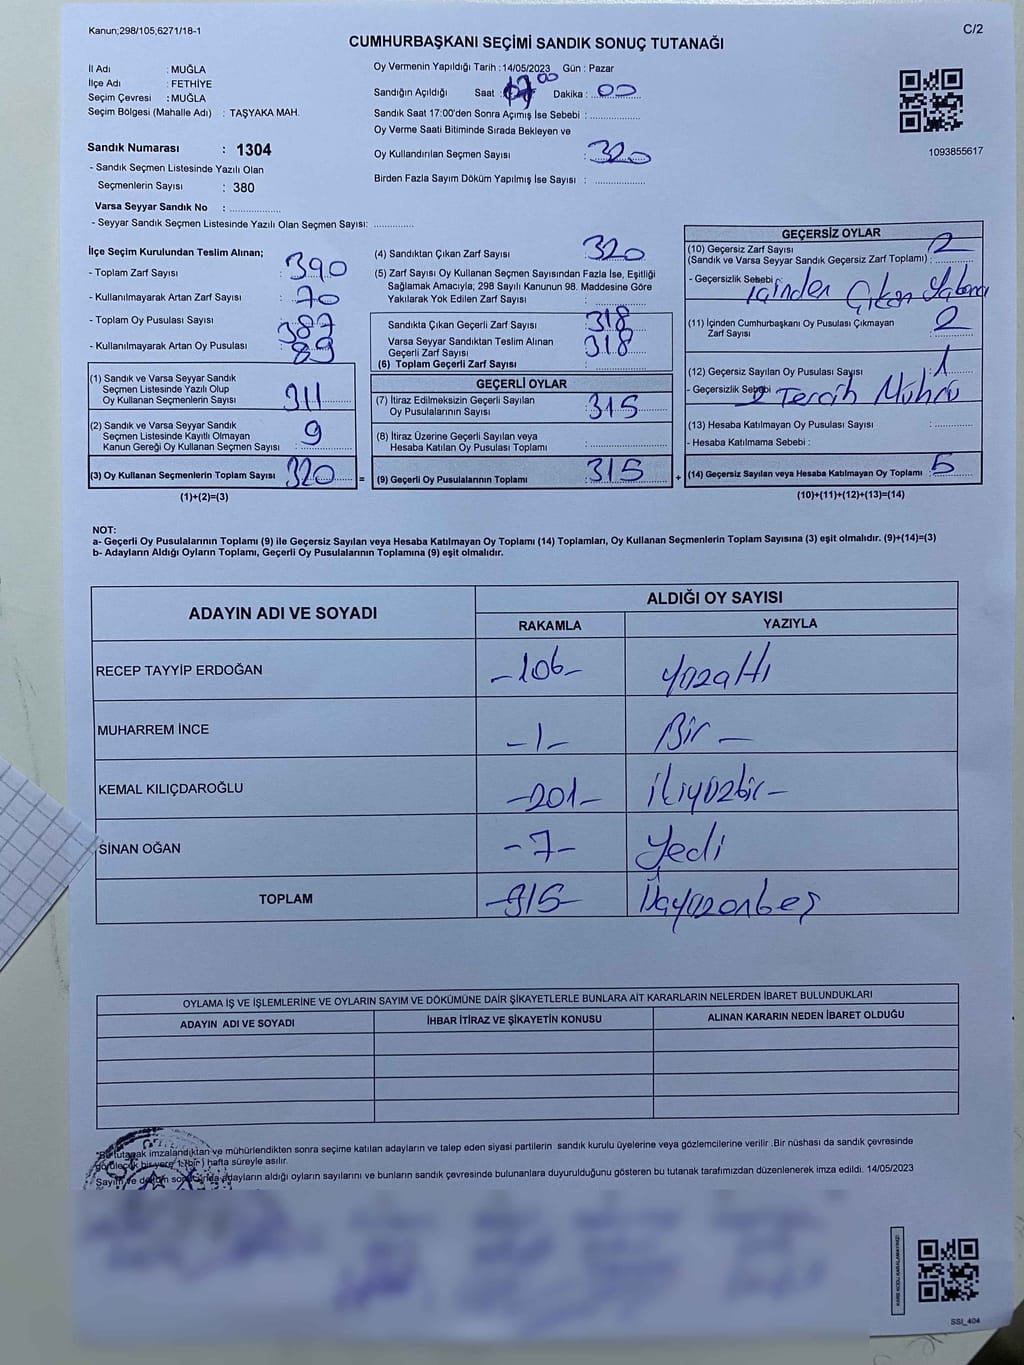 Kanun;298/105,6271/18-1
C/2
CUMHURBAŞKANI SEÇİMİ SANDIK SONUÇ TUTANAĞI
İl Adı : MUĞLA
İlçe Adı : FETHİYE
Seçim Çevresi : MUĞLA
Seçim Bölgesi (Mahalle Adı) : TAŞYAKA MAH.
Sandık Numarası : 1304
- Sandık Seçmen Listesinde Yazılı Olan
Seçmenlerin Sayısı : 380
Varsa Seyyar Sandık No : ................
- Seyyar Sandık Seçmen Listesinde Yazılı Olan Seçmen Sayısı: ............
Oy Vermenin Yapıldığı Tarih :14/05/2023 Gün : Pazar
Sandığın Açıldığı Saat : 17 00 Dakika : 00
Sandık Saat 17:00'den Sonra Açımış İse Sebebi : ................
Oy Verme Saati Bitiminde Sırada Bekleyen ve
Oy Kullandırılan Seçmen Sayısı : 320
Birden Fazla Sayım Döküm Yapılmış İse Sayısı : ................
1093855617
İlçe Seçim Kurulundan Teslim Alınan;
- Toplam Zarf Sayısı : 390
- Kullanılmayarak Artan Zarf Sayısı : 70
- Toplam Oy Pusulası Sayısı : 387
- Kullanılmayarak Artan Oy Pusulası
(1) Sandık ve Varsa Seyyar Sandık
Seçmen Listesinde Yazılı Olup
Oy Kullanan Seçmenlerin Sayısı 311
(2) Sandık ve Varsa Seyyar Sandık
Seçmen Listesinde Kayıtlı Olmayan
Kanun Gereği Oy Kullanan Seçmen Sayısı : 9
(3) Oy Kullanan Seçmenlerin Toplam Sayısı 320 =
(1)+(2)=(3)
(4) Sandıktan Çıkan Zarf Sayısı 320
(5) Zarf Sayısı Oy Kullanan Seçmen Sayısından Fazla İse, Eşitliği
Sağlamak Amacıyla; 298 Sayılı Kanunun 98. Maddesine Göre
Yakılarak Yok Edilen Zarf Sayısı : ................
Sandıkta Çıkan Geçerli Zarf Sayısı 318
Varsa Seyyar Sandıktan Teslim Alınan
Geçerli Zarf Sayısı 318
(6) Toplam Geçerli Zarf Sayısı :
GEÇERLİ OYLAR
(7) İtiraz Edilmeksizin Geçerli Sayılan
Oy Pusulalarının Sayısı : 315
(8) İtiraz Üzerine Geçerli Sayılan veya
Hesaba Katılan Oy Pusulası Toplamı : ................
(9) Geçerli Oy Pusulalarının Toplamı : 315 +
GEÇERSİZ OYLAR
(10) Geçersiz Zarf Sayısı 2
(Sandık ve Varsa Seyyar Sandık Geçersiz Zarf Toplamı) :
- Geçersizlik Sebebi : içinden Çıkan
(11) İçinden Cumhurbaşkanı Oy Pusulası Çıkmayan 2
Zarf Sayısı
(12) Geçersiz Sayılan Oy Pusulası Sayısı 1
- Geçersizlik Sebebi 2 Tercih Mührü
(13) Hesaba Katılmayan Oy Pusulası Sayısı : ............
- Hesaba Katılmama Sebebi :
(14) Geçersiz Sayılan veya Hesaba Katılmayan Oy Toplamı : 5
(10)+(11)+(12)+(13)=(14)
NOT:
a- Geçerli Oy Pusulalarının Toplamı (9) ile Geçersiz Sayılan veya Hesaba Katılmayan Oy Toplamı (14) Toplamları, Oy Kullanan Seçmenlerin Toplam Sayısına (3) eşit olmalıdır. (9)+(14)=(3)
b- Adayların Aldığı Oyların Toplamı, Geçerli Oy Pusulalarının Toplamına (9) eşit olmalıdır.
ADAYIN ADI VE SOYADI
ALDIĞI OY SAYISI
RAKAMLA YAZIYLA
RECEP TAYYİP ERDOĞAN -106- yüzaltı
MUHARREM İNCE -1- Bir -
KEMAL KILIÇDAROĞLU -201- ikiyüzbir -
SİNAN OĞAN -7- yedi
TOPLAM -315- üçyüzonbeş
OYLAMA İŞ VE İŞLEMLERİNE VE OYLARIN SAYIM VE DÖKÜMÜNE DAİR ŞİKAYETLERLE BUNLARA AİT KARARLARIN NELERDEN İBARET BULUNDUKLARI
ADAYIN ADI VE SOYADI İHBAR İTİRAZ VE ŞİKAYETİN KONUSU ALINAN KARARIN NEDEN İBARET OLDUĞU
*Bu tutanak imzalandıktan ve mühürlendikten sonra seçime katılan adayların ve talep eden siyasi partilerin sandık kurulu üyelerine veya gözlemcilerine verilir .Bir nüshası da sandık çevresinde
görülecek bir yere 1 (bir) hafta süreyle asılır.
Sayım ve döküm sonucunda adayların aldığı oyların sayılarını ve bunların sandık çevresinde bulunanlara duyurulduğunu gösteren bu tutanak tarafımızdan düzenlenerek imza edildi. 14/05/2023
KARE KODU KARALAMAYINIZ!
SSI_404